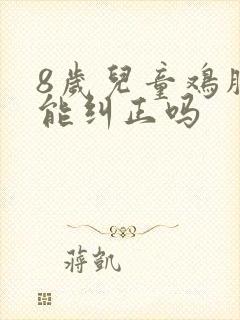 8歲兒童鸡胸
能纠正吗
蒋凯